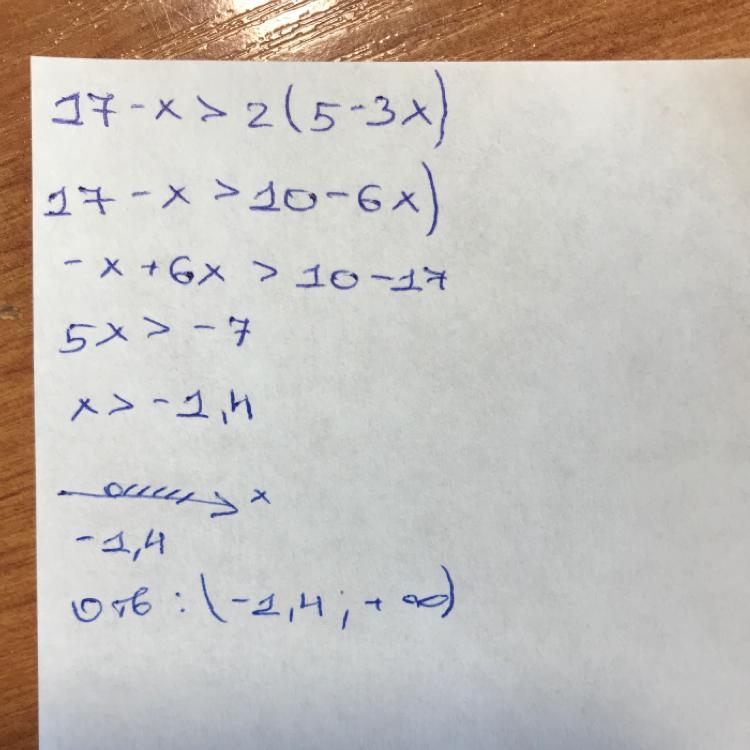 17-x > 2(5-3x)
17-x > 10-6x)
-x+6x > 10-17
5x > -7
x > -1,4
x
-1,4
отв: (-1,4; +∞)